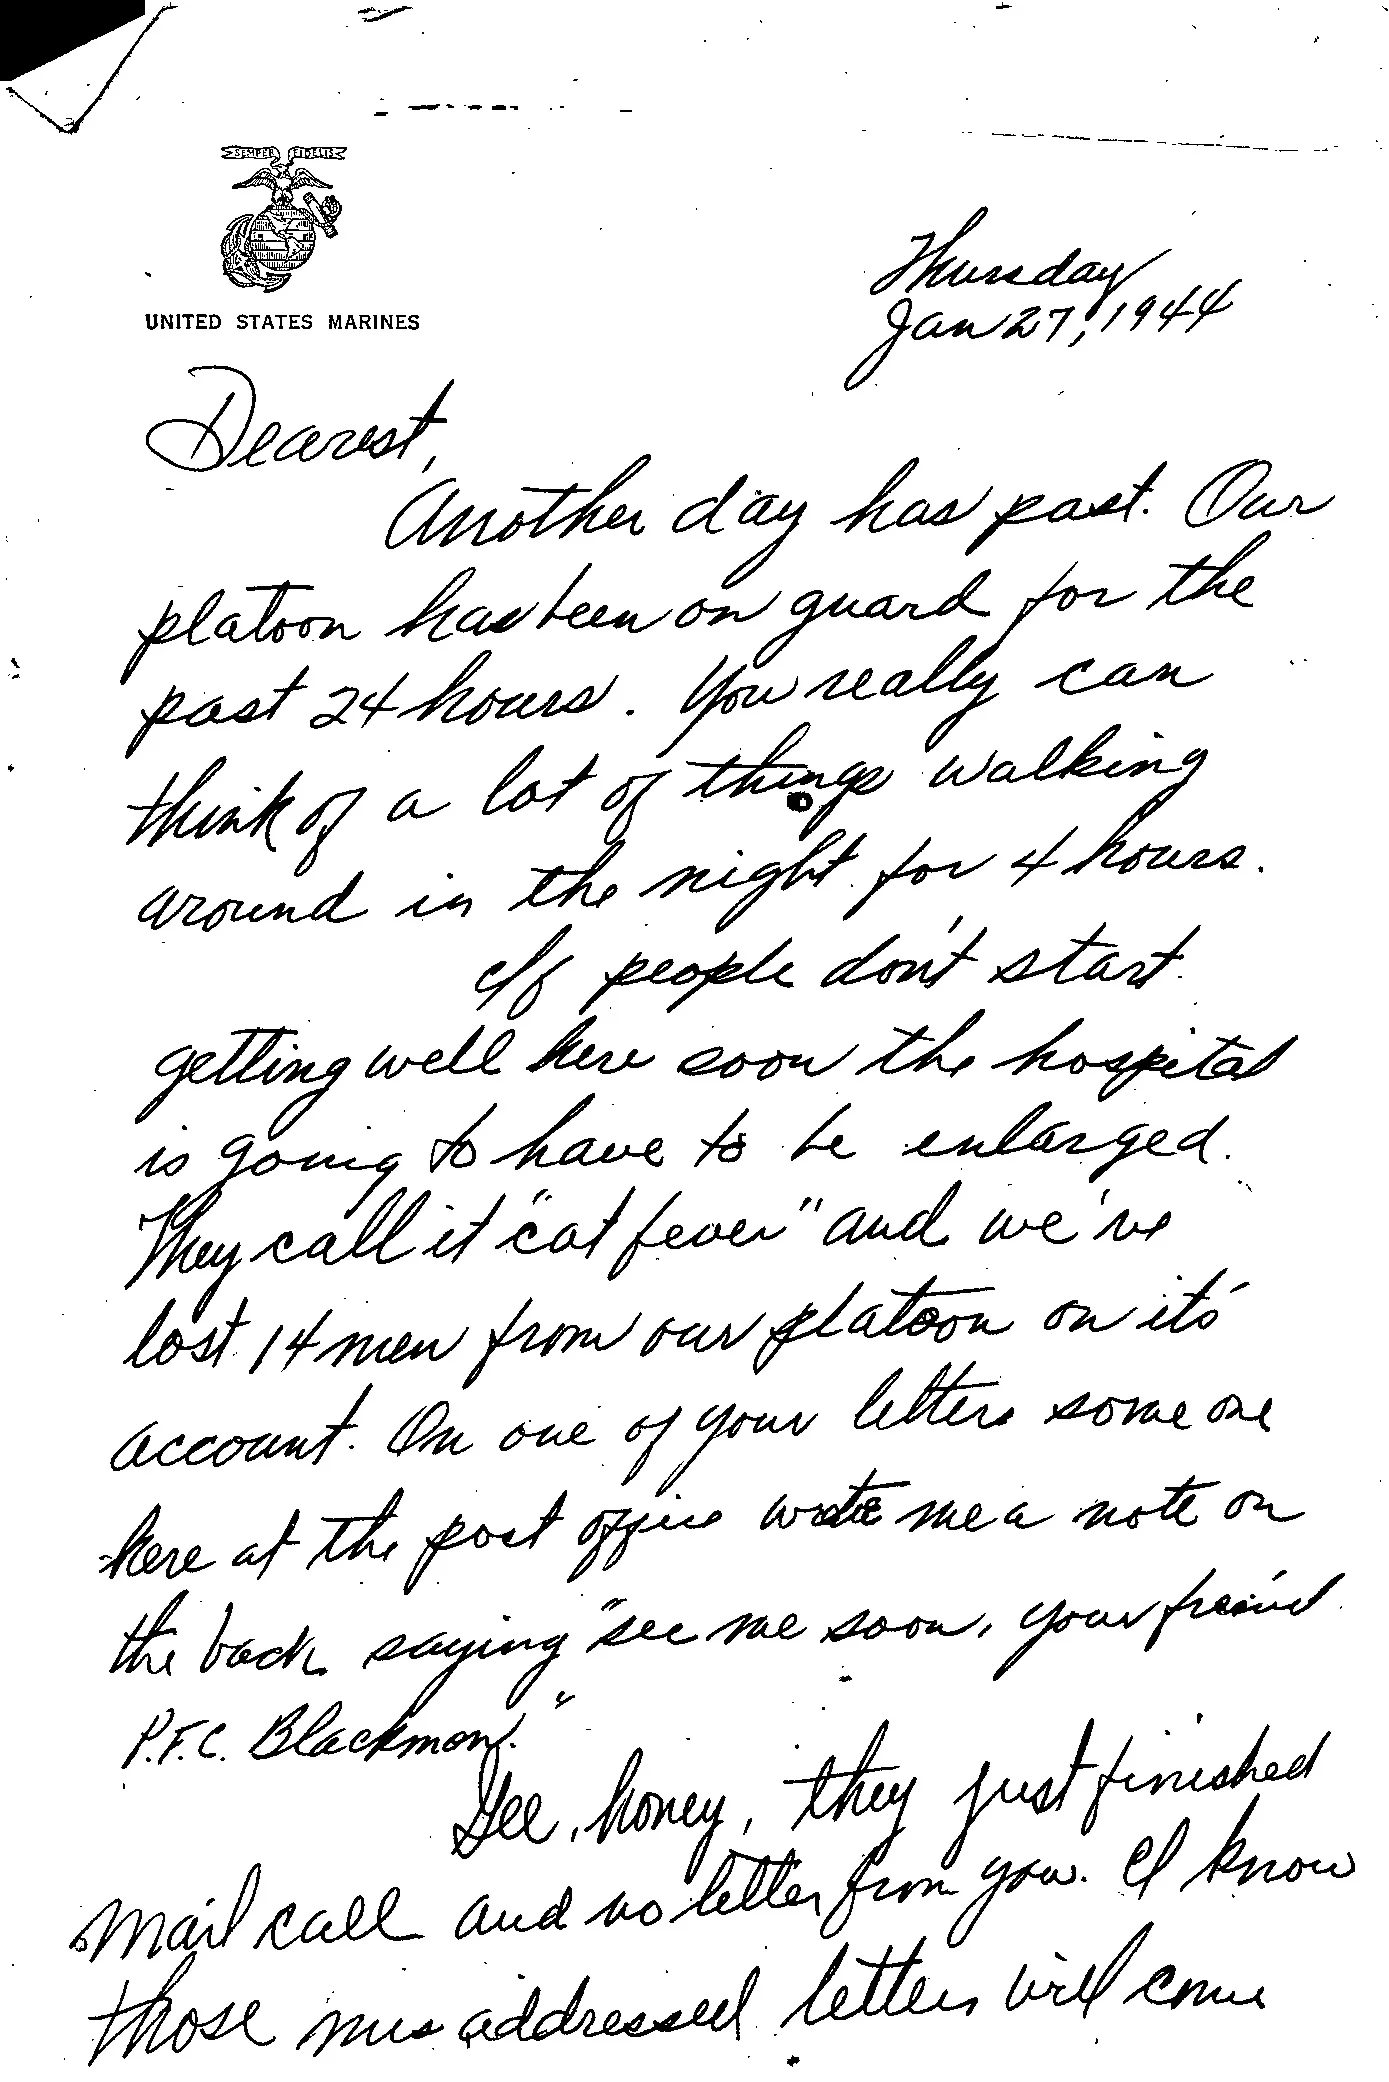 SEMPER FIDELIS
UNITED STATES MARINES
Thursday
Jan 27, 1944
Dearest,
Another day has past. Our
platoon has been on guard for the
past 24 hours. You really can
think of a lot of things walking
around in the night for 4 hours.
If people don't start
getting well here soon the hospital
is going to have to be enlarged.
They call it "cat fever" and we've
lost 14 men from our platoon on it's
account. On one of your letters some one
here at the post office wrote me a note on
the back saying "see me soon, your freind
P.F.C. Blackmon."
Gee, honey, they just finished
mail call and no letter from you. I know
those mis addressed letters will come